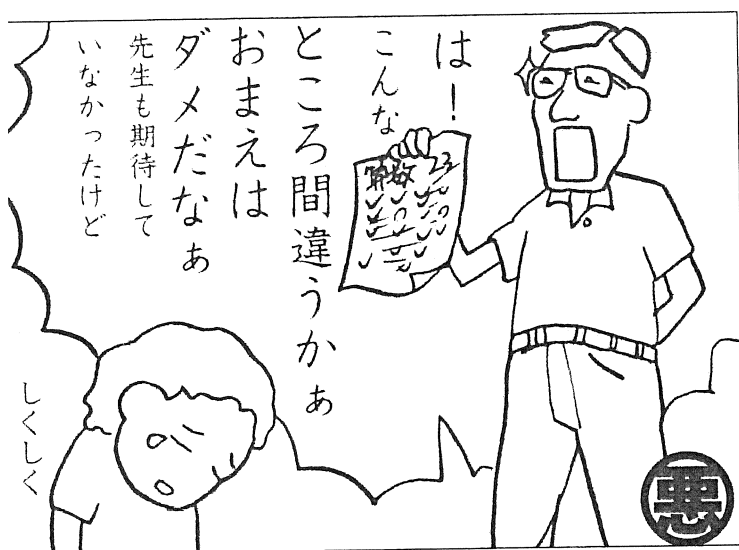 は!
こんな
ところ間違うかぁ
おまえは
ダメだなぁ
先生も期待して
いなかったけど
算数 22
しくしく
悪